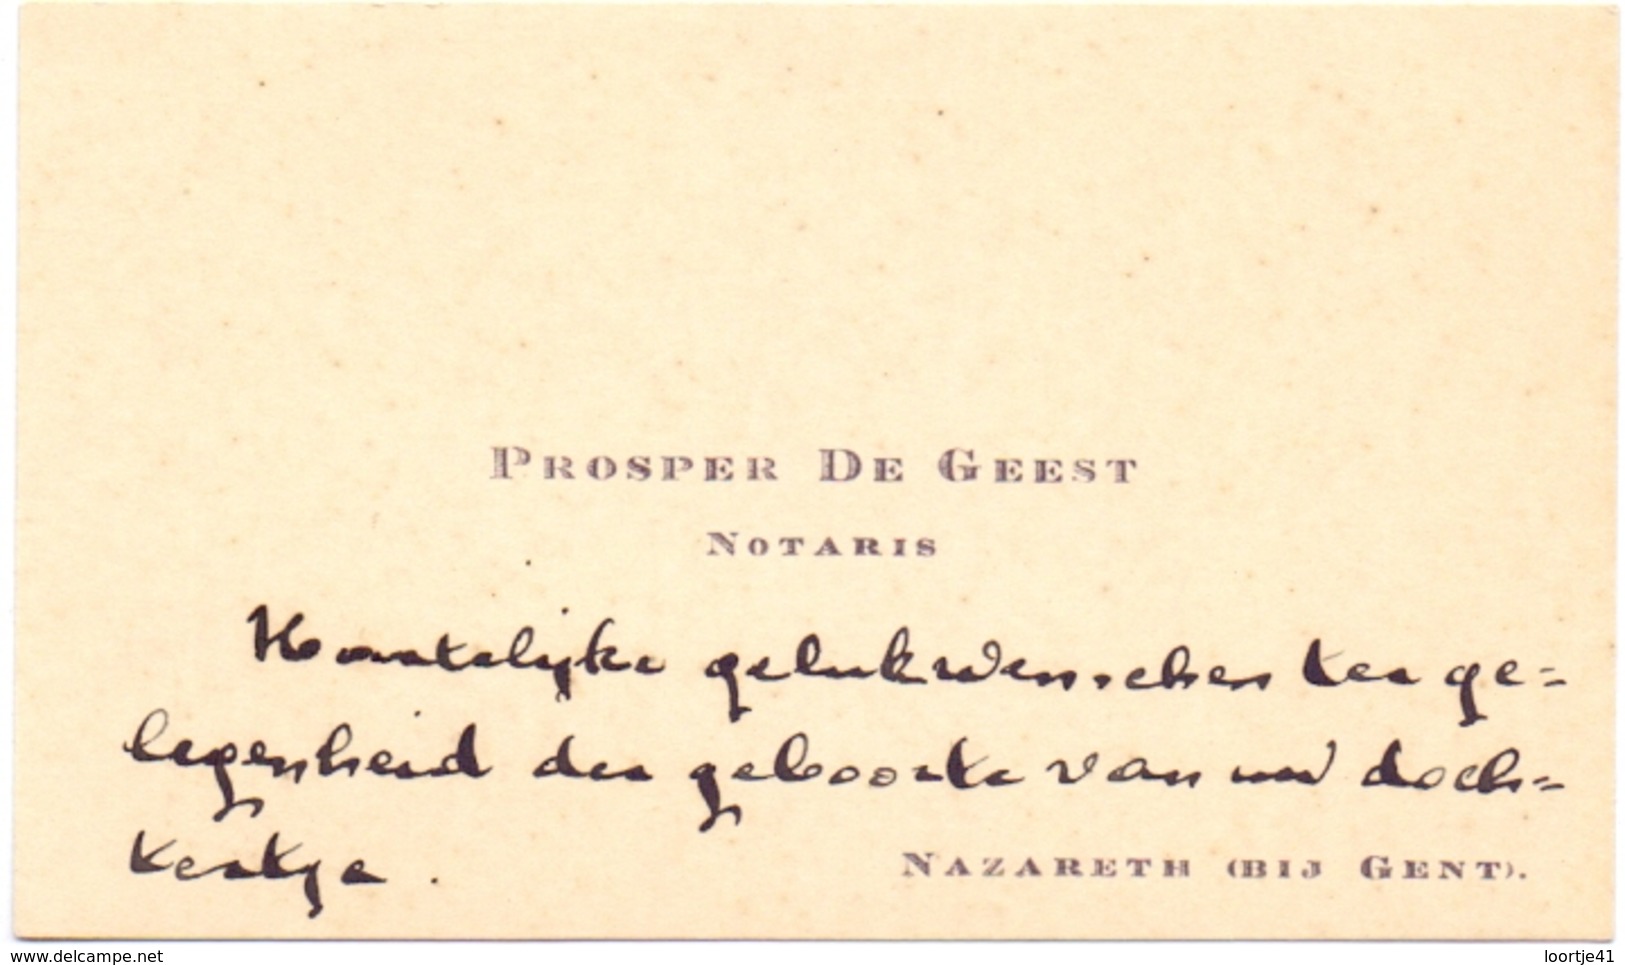 PROSPER DE GEEST
NOTARIS
Hartelijke gelukwenschen ter ge=
legenheid der geboorte van uw doch=
tertje.
NAZARETH (BIJ GENT).
www.delcampe.net
loortje41